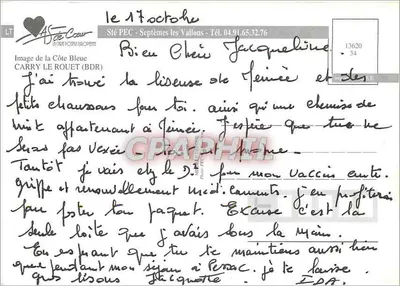 le 17 octobre
LT
As de Cœur
Sté PEC - Septèmes les Vallons - Tél. 04.91.65.32.76
Image de la Côte Bleue
CARRY LE ROUET (BDR)
13620
54
Bien Chère Jacqueline
J'ai trouvé la liseuse de Jeinée et des
petits chaussons pour toi. ainsi qu'une chemise de
nuit appartenant à J'espère que tu ne
seras pas vexée
Tantôt je vais chez le Dr pour mon vaccin anti
grippe et renouvellement médicaments. j'en profiterai
pour poster ton paquet. Excuse c'est la
seule boite que j'avais sous la main.
En espérant que tu te maintiens aussi bien
que pendant mon séjour à Pessac. je te laisse.
gros bisous Jacquotte
GRAPHEL